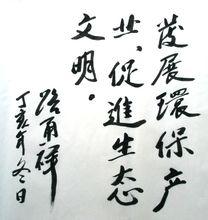 發展環保产
业,促進生态
文明。
路甬祥
丁亥年冬日